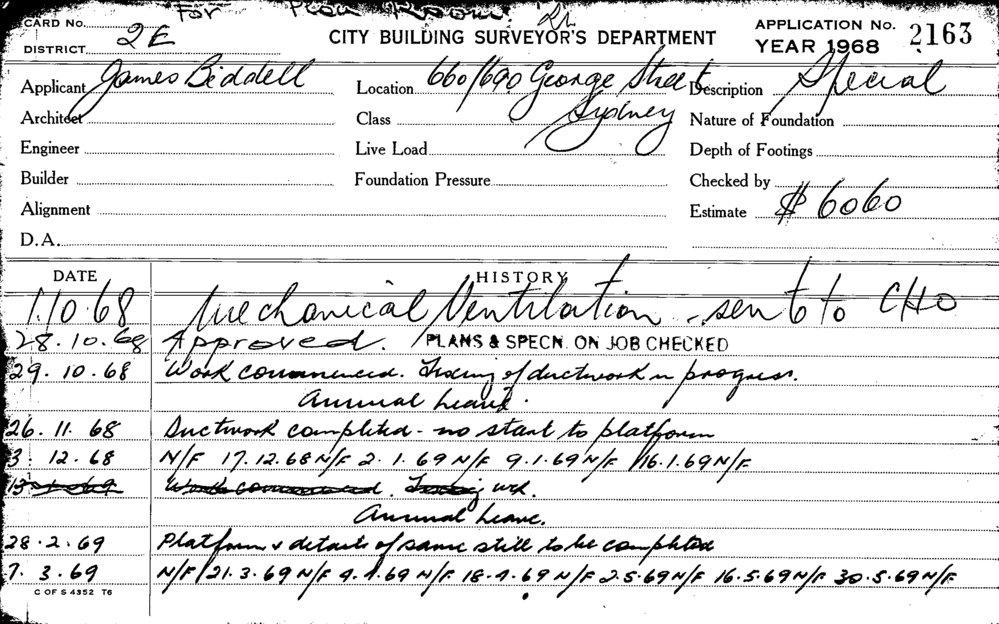 CARD No. For Plan Room.
DISTRICT 2E
CITY BUILDING SURVEYOR'S DEPARTMENT
APPLICATION No. 2163
YEAR 1968
Applicant James Biddell
Location 660/690 George Street Sydney
Description Special
Architect
Class
Nature of Foundation
Engineer
Live Load
Depth of Footings
Builder
Foundation Pressure
Checked by
Alignment
Estimate $6060
D.A.
DATE HISTORY
1.10.68 Mechanical Ventilation - sent to CHO
28.10.68 Approved. /PLANS & SPECN. ON JOB CHECKED
29.10.68 Work commenced. Fixing of ductwork in progress.
Annual Leave.
26.11.68 Ductwork completed - no start to platform
3.12.68 N/F 17.12.68 N/F 2.1.69 N/F 9.1.69 N/F /16.1.69 N/F
Work commenced. Fixing wk.
Annual Leave.
28.2.69 Platform & details of same still to be completed
7.3.69 N/F /21.3.69 N/F 9.4.69 N/F 18.4.69 N/F 2.5.69 N/F 16.5.69 N/F 30.5.69 N/F
C OF S 4352 T6